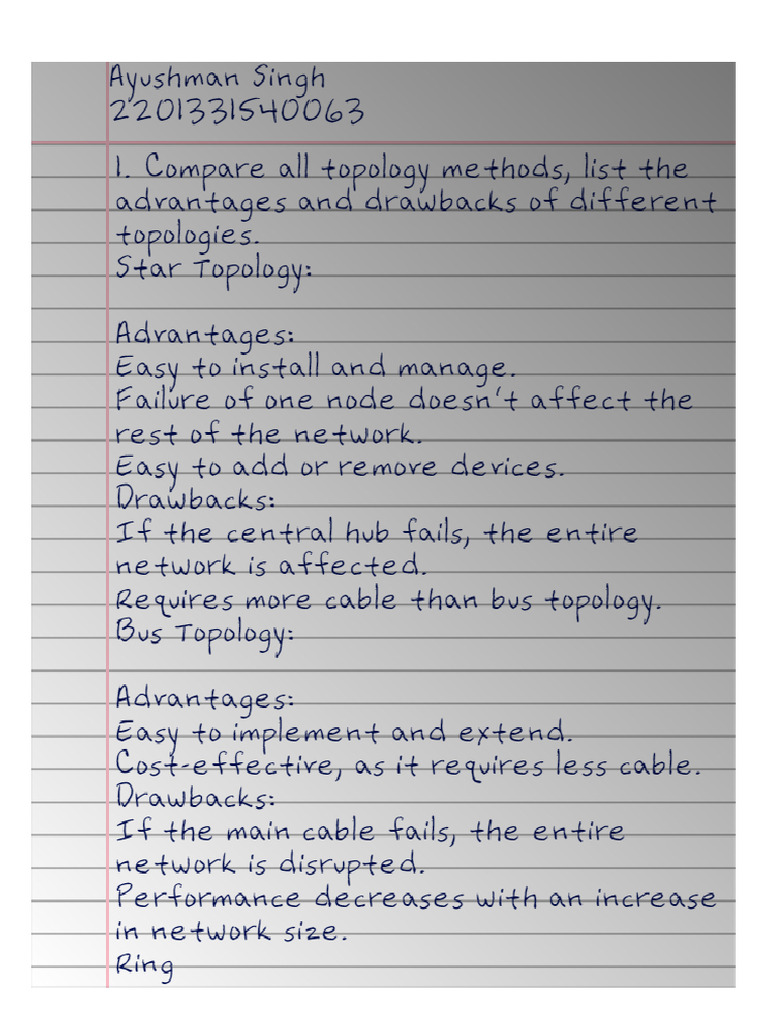 Ayushman Singh
2201331540063
1. Compare all topology methods, list the
advantages and drawbacks of different
topologies.
Star Topology:
Advantages:
Easy to install and manage.
Failure of one node doesn't affect the
rest of the network.
Easy to add or remove devices.
Drawbacks:
If the central hub fails, the entire
network is affected.
Requires more cable than bus topology.
Bus Topology:
Advantages:
Easy to implement and extend.
Cost-effective, as it requires less cable.
Drawbacks:
If the main cable fails, the entire
network is disrupted.
Performance decreases with an increase
in network size.
Ring